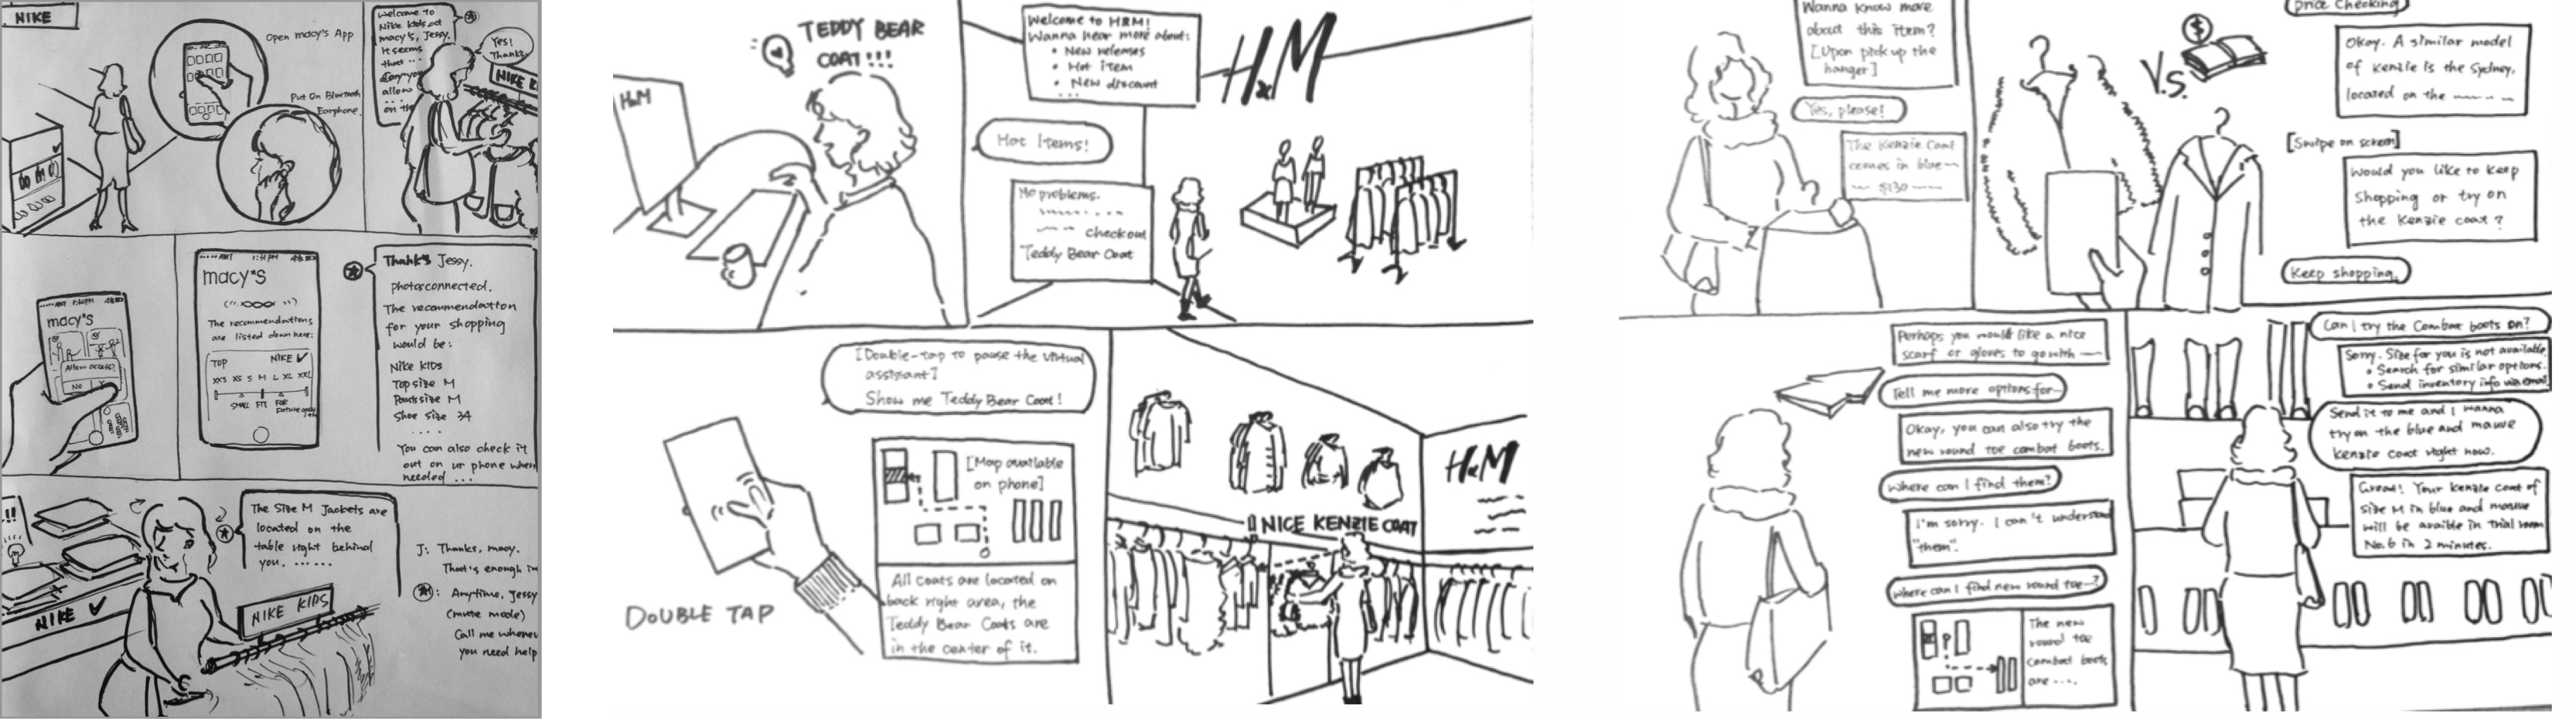 NIKE
Open macy's App
Put On Bluetooth
Earphone.
Welcome to
Nike kids at
macy's, Jessy.
It seems
that ...
allow
on th
Yes!
Thanks
NIKE K
macy's
Allow access?
No
1:31PM
macy's
The recommendations
are listed down here:
TOP
NIKE
XXS XS S M L XL XXL
SMALL FIT FOR
Thanks Jessy.
photos connected.
The recommendation
for your shopping
would be:
Nike KIDS
Top size M
Pants size M
Shoe size 34
....
You can also check it
out on ur phone when
needed ...
!!
The Size M Jackets are
located on the
table right behind
you. ......
NIKE
NIKE KIDS
J: Thanks, macy.
That's enough in
: Anytime, Jessy
(mute mode)
Call me whenev
you need help
TEDDY BEAR
COAT!!!
H&M
Welcome to H&M!
Wanna hear more about:
• New releases
• Hot item
• New discount
...
H&M
Hot Items!
No problems.
checkout
Teddy Bear Coat
[Double-tap to pause the virtual
assistant]
Show me Teddy Bear Coat!
DOUBLE TAP
[Map available
on phone]
All coats are located on
back right area, the
Teddy Bear Coats are
in the center of it.
H&M
NICE KENZIE COAT
Wanna know more
about this item?
[Upon pick up the
hanger]
Yes, please!
The Kenzie Coat
comes in blue
$130
V.S.
$
price checking
Okay. A similar model
of Kenzie is the Sydney,
located on the
[Swipe on screen]
Would you like to keep
shopping or try on
the Kenzie coat?
Keep shopping.
Perhaps you would like a nice
scarf or gloves to go with
Tell me more options for
Okay, you can also try the
new round toe combat boots.
Where can I find them?
I'm sorry. I can't understand
"them".
Where can I find new round toe—?
The new
round toe
combat boots
are ....
Can I try the Combat boots on?
Sorry. Size for you is not available
• Search for similar options.
• Send inventory info via email
Send it to me and I wanna
try on the blue and mauve
Kenzie coat right now.
Great! Your Kenzie coat of
size M in blue and mauve
will be avaible in trial room
No.6 in 2 minutes.